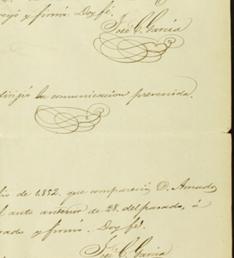 y firmó. Doy fé.
José C. García
dirigió la comunicacion prevenida.
de 1872. que compareció D. Amado
el auto anterior de 28. del pasado, á
y firmó. Doy fé.
José C. García